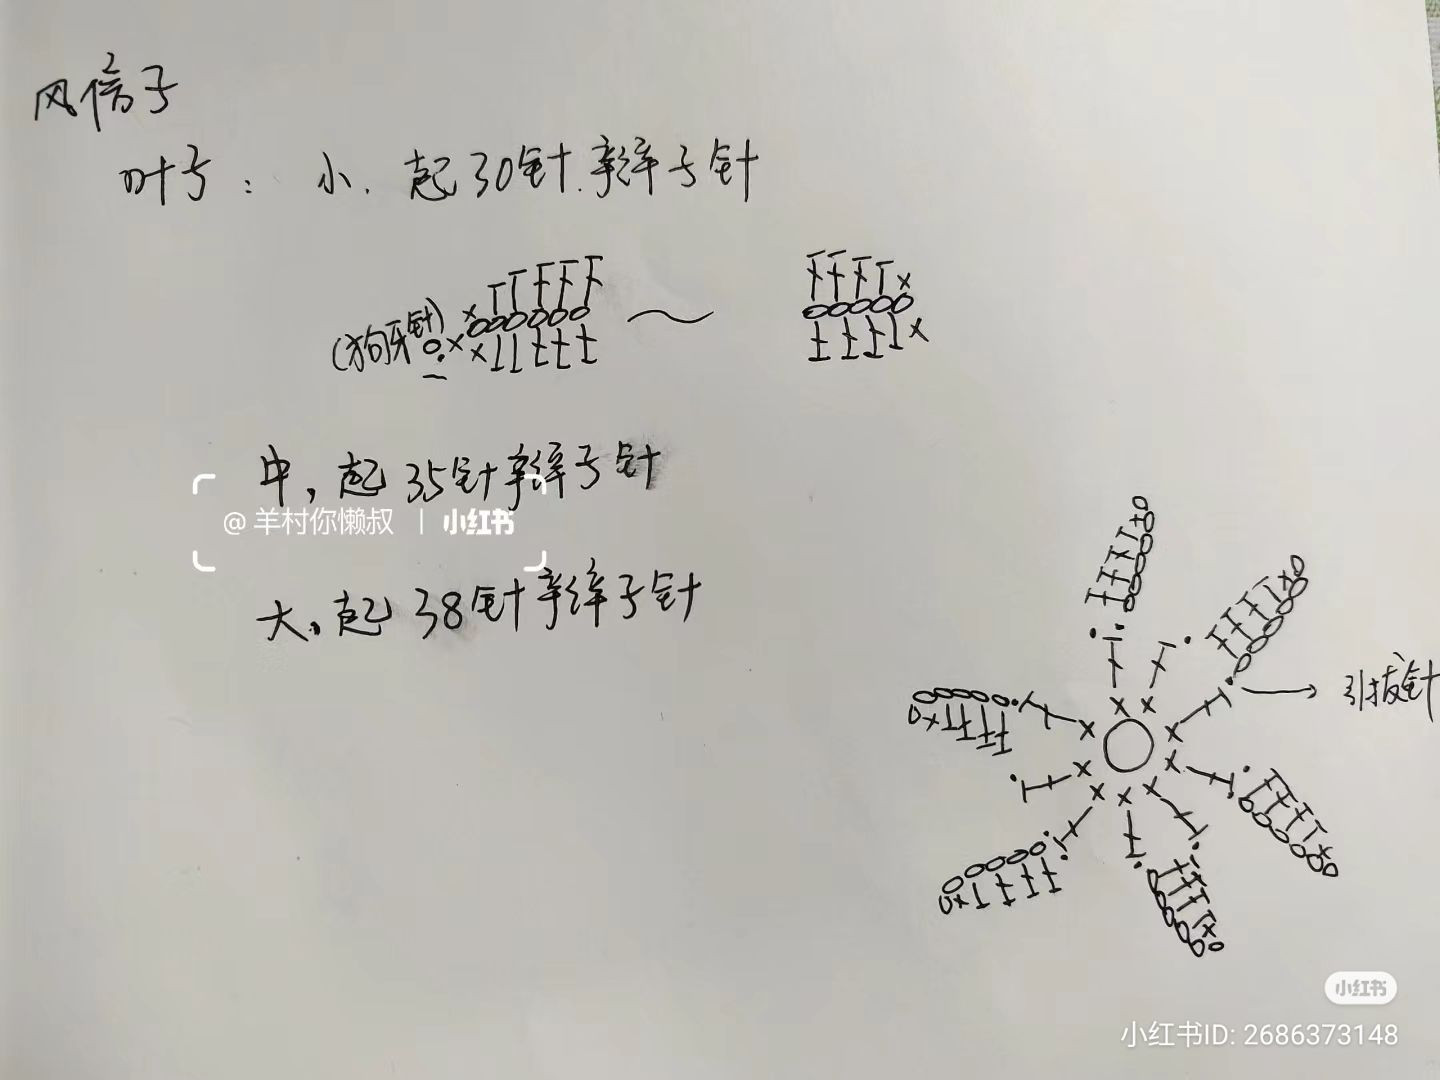 风信子
叶子：小、起30针.辫子针
(狗牙针)
中，起35针辫子针
@羊村你懒叔 | 小红书
大、起38针辫子针
引拔针
小红书
小红书ID: 2686373148